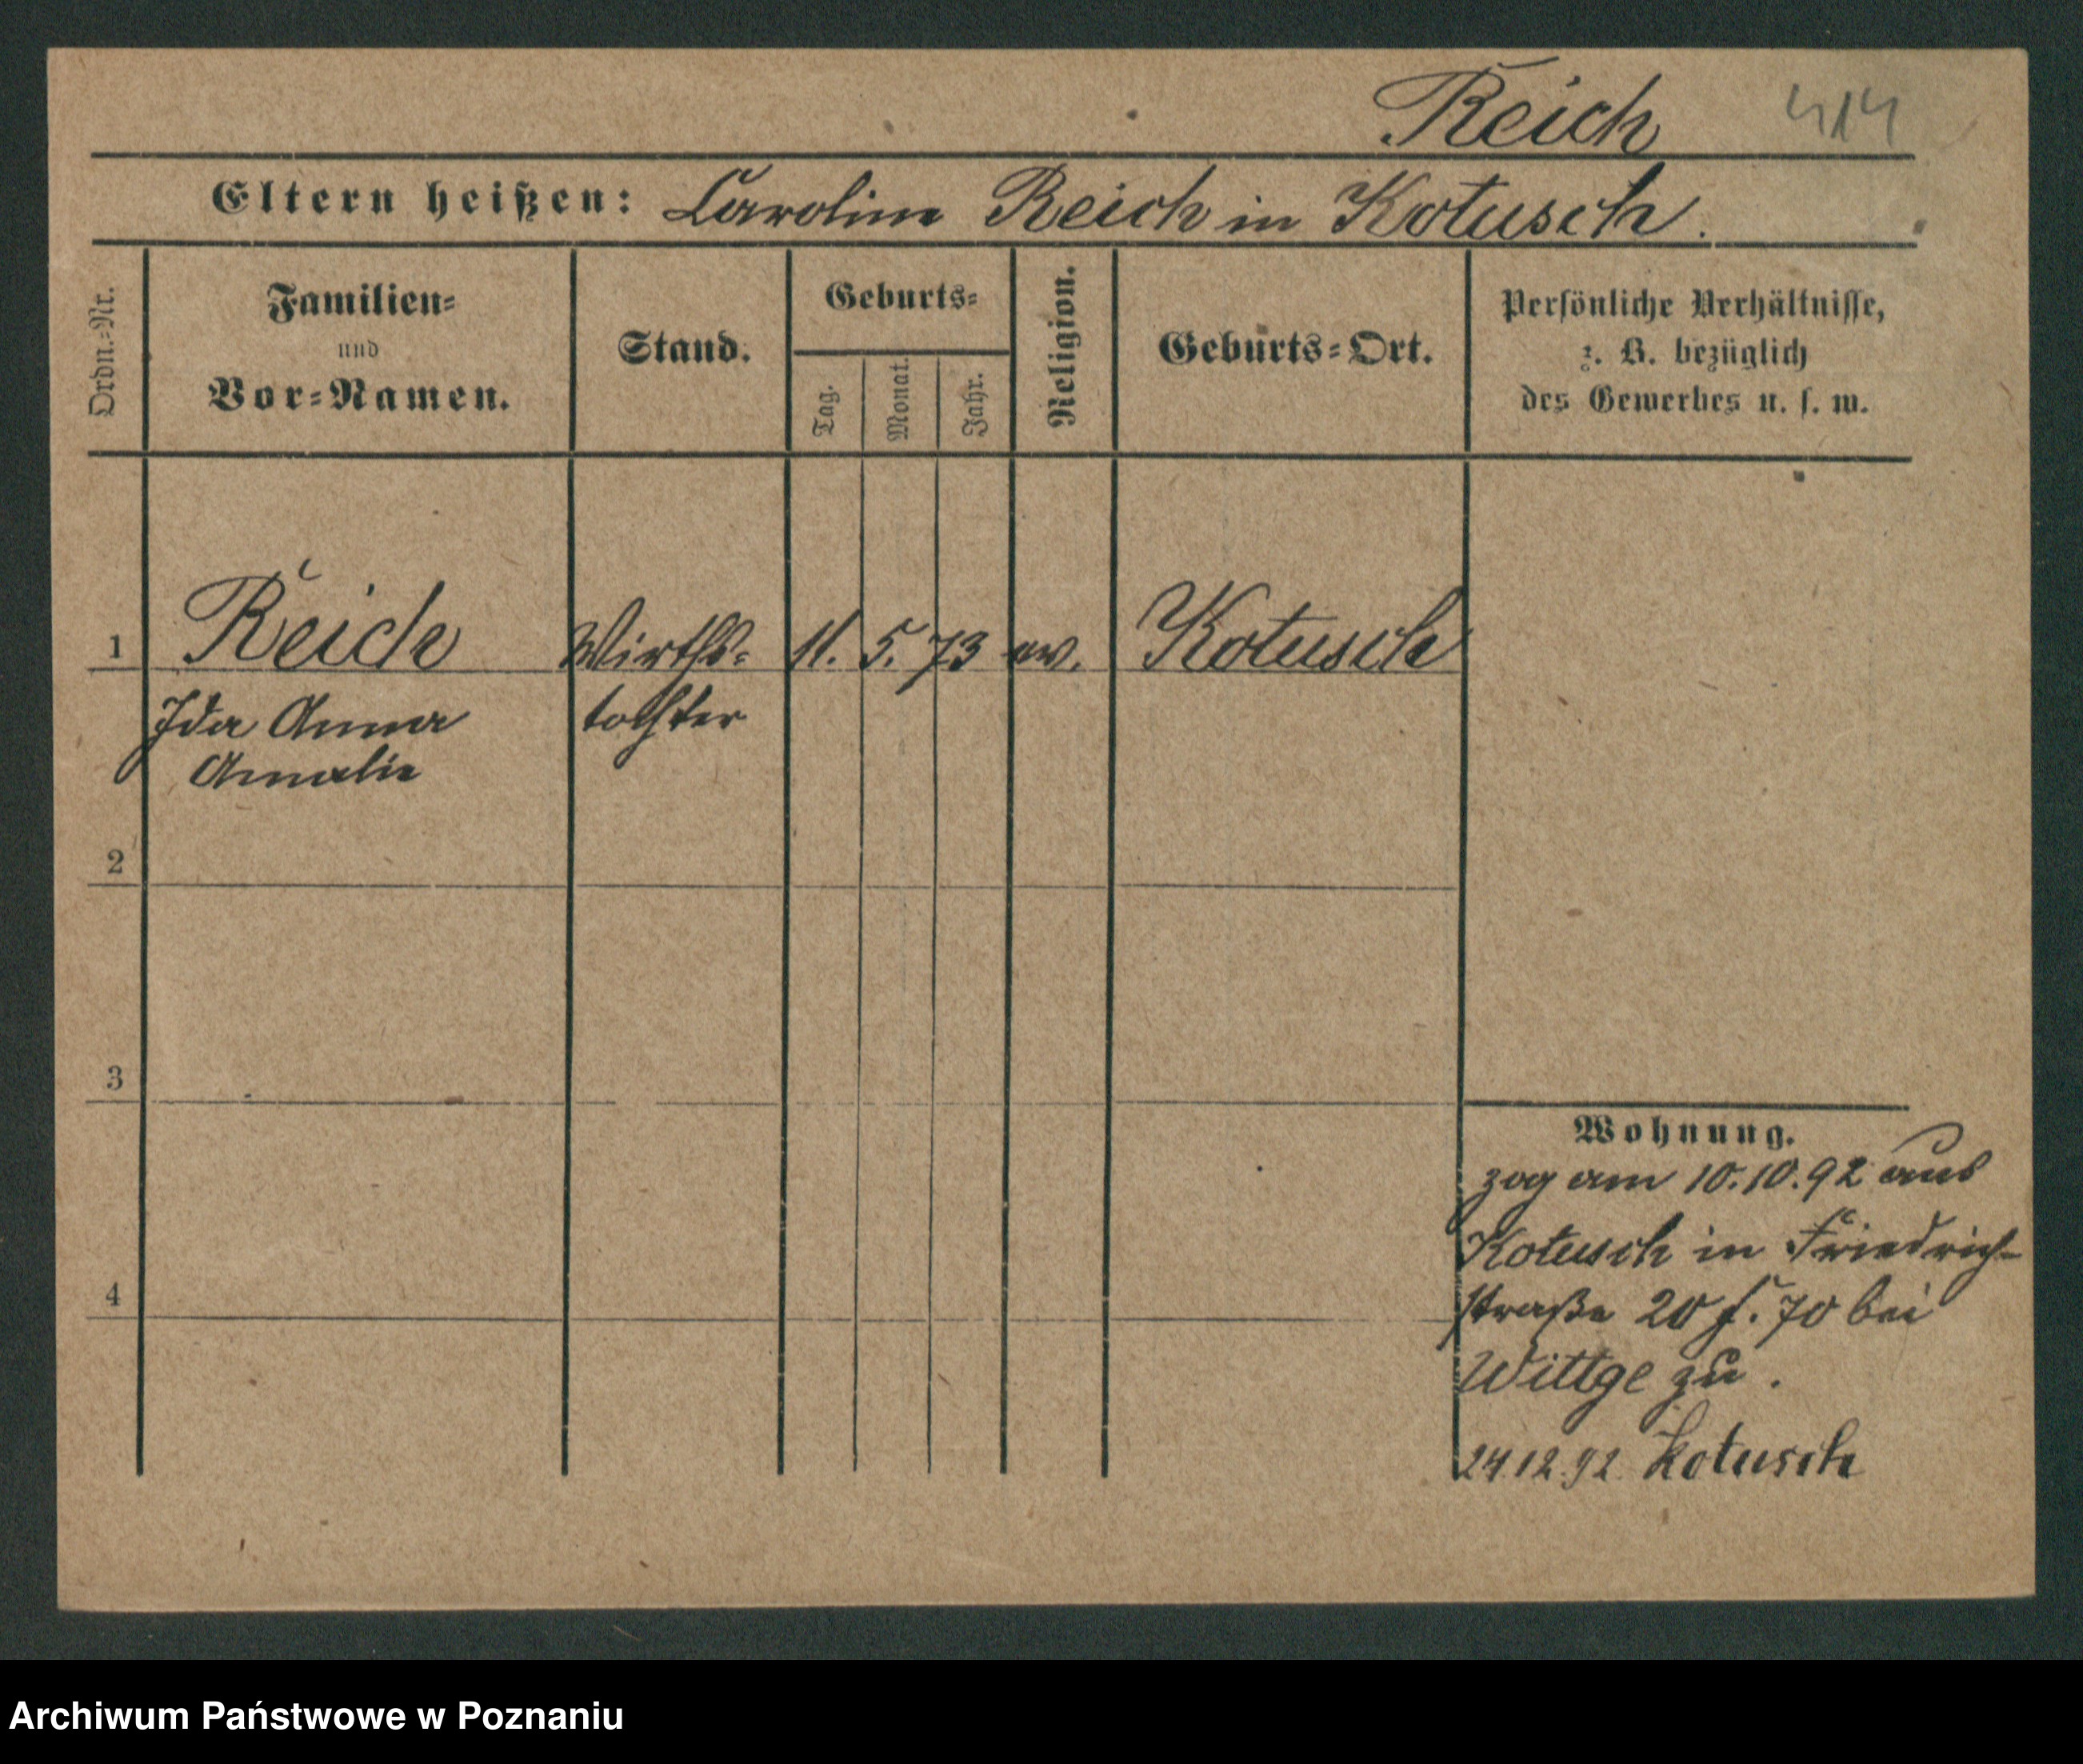 Reich 414
Eltern heißen: Caroline Reich in Kotusch.
Ordn.-Nr.
Familien-
und
Vor-Namen.
Stand.
Geburts-
Tag.
Monat.
Jahr.
Religion.
Geburts-Ort.
Persönliche Verhältnisse,
z. B. bezüglich
des Gewerbes u. s. w.
1 Reich Wirths- 11. 5. 73 ev. Kotusch
Ida Anna tochter
Amalie
2
3
4
Wohnung.
zog am 10.10.92 aus
Kotusch in Friedrich-
straße 20 f. 70 bei
Wittge zu.
24 12.92 Kotusch
Archiwum Państwowe w Poznaniu